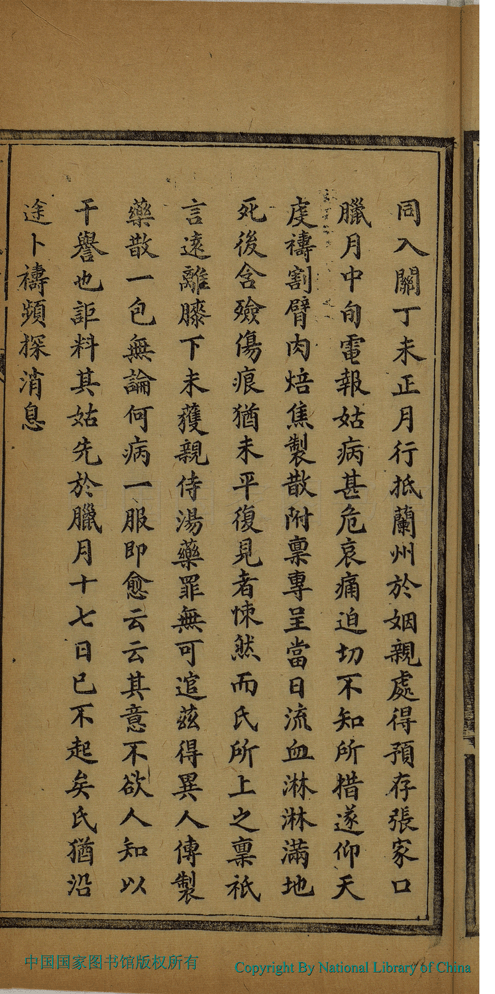 同入關丁未正月行抵蘭州於姻親處得預存張家口
臘月中旬電報姑病甚危哀痛迫切不知所措遂仰天
虔禱割臂肉焙焦製散附稟專呈當日流血淋淋滿地
死後含殮傷痕猶未平復見者悚然而氏所上之稟祇
言遠離膝下未獲親侍湯藥罪無可逭茲得異人傳製
藥散一包無論何病一服即愈云云其意不欲人知以
干譽也詎料其姑先於臘月十七日已不起矣氏猶沿
途卜禱頻探消息
中国国家图书馆版权所有
Copyright By National Library of China